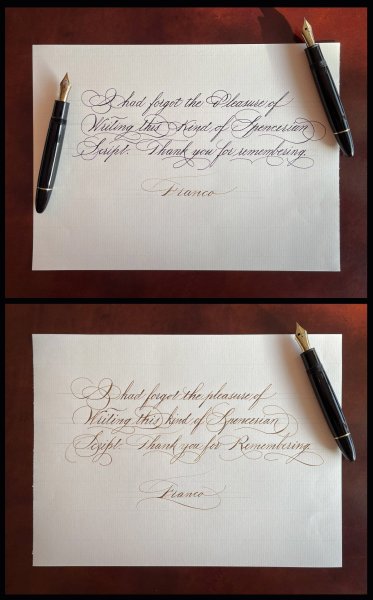 I had forgot the Pleasure of
Writing this Kind of Spencerian
Script. Thank you for remembering.
Franco
I had forgot the pleasure of
Writing this kind of Spencerian
Script. Thank you for Remembering
Franco